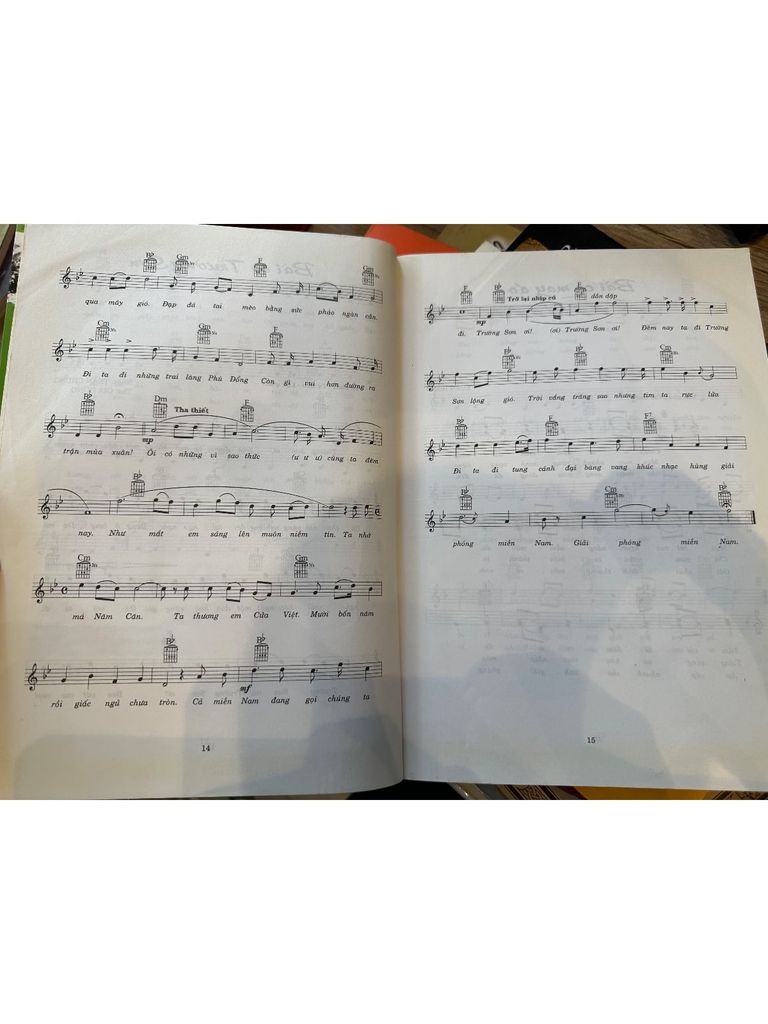 B♭ Gm F Gm
qua mây gió. Đạp đá tai mèo bằng sức pháo ngàn cân.
Cm Gm F
Đi ta đi những trai làng Phù Đổng Còn gì vui hơn đường ra
B♭ Dm Tha thiết F
mp
trận mùa xuân! Ôi có những vì sao thức (ư ư ư) cùng ta đêm
B♭
nay. Như mắt em sáng lên muôn niềm tin. Ta nhớ
Cm Cm
má Năm Căn. Ta thương em Cửa Việt. Mười bốn năm
B♭ B♭
mf
rồi giấc ngủ chưa tròn. Cả miền Nam đang gọi chúng ta
14
F B♭ Trở lại nhịp cũ dồn dập
mp
đi. Trường Sơn ơi! (ơi) Trường Sơn ơi! Đêm nay ta đi Trường
Sơn lộng gió. Trời vắng trăng sao nhưng tim ta rực lửa
B♭ F F7
Đi ta đi tung cánh đại bàng vang khúc nhạc hùng giải
B♭ Cm B♭
phóng miền Nam. Giải phóng miền Nam.
15